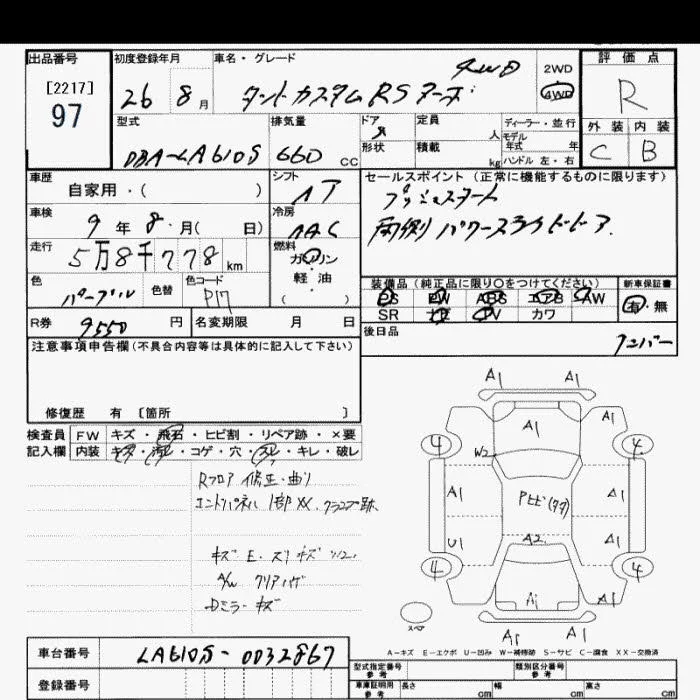 出品番号 初度登録年月 車名・グレード 評価点
[2217]
97
26 8月 タントカスタムRS ターボ 4WD
2WD
4WD
R
型式 排気量 ドア 定員 人 ディーラー・並行
形状 積載 kg モデル年式 年
ハンドル 左・右
外装 内装
DBA-LA610S 660 CC
C B
車歴 シフト セールスポイント (正常に機能するものに限ります)
自家用・( ) AT
プッシュスタート
車検 9年 8月( 日) 冷房 AAC
両側パワースライドドア
走行 5万8千778km 燃料 ガソリン
軽油
( )
色 パープル 色替 色コード P17
装備品 (純正品に限り○をつけてください) 新車保証書
PS PW ABS エアB AW 有・無
SR ナビ TV カワ
R券 9550円 名変期限 月 日
後日品
ナンバー
注意事項申告欄(不具合内容等は具体的に記入して下さい)
修復歴 有 〔箇所 〕
検査員 FW キズ・飛石・ヒビ割・リペア跡・×要
記入欄 内装 キズ・汚レ・コゲ・穴・スレ・キレ・破レ
Rフロア 修正・曲り
エンドパネル 1部XX. クランプ跡
キズ E・スリキズ
A/W クリアハゲ
Dミラーキズ
A1 A1
A1 A1
4 4
W2
A1 Pヒビ A1
U1 A2 A1
4 4
A1 A1
スペア
A1 A1
A-キズ E-エクボ U-凹み W-補修跡 S-サビ C-腐食 XX-交換済
車台番号 LA610S-0032867
登録番号
型式指定番号 参考 類別区分番号 参考
車庫証明用 参考 長さ cm 幅 cm 高さ cm